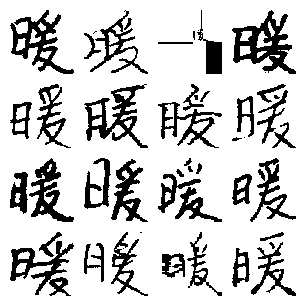 暖暖暖
暖暖暖暖
暖暖暖暖
暖暖暖暖